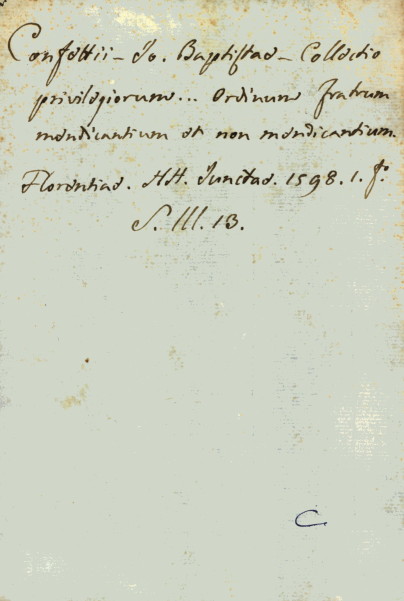 Confettii - Jo. Baptistae - Collectio
privilegiorum... Ordinum fratrum
mendicantium et non mendicantium.
Florentiae. HH. Junctae. 1598. 1. f.º
S. III. 13.
C